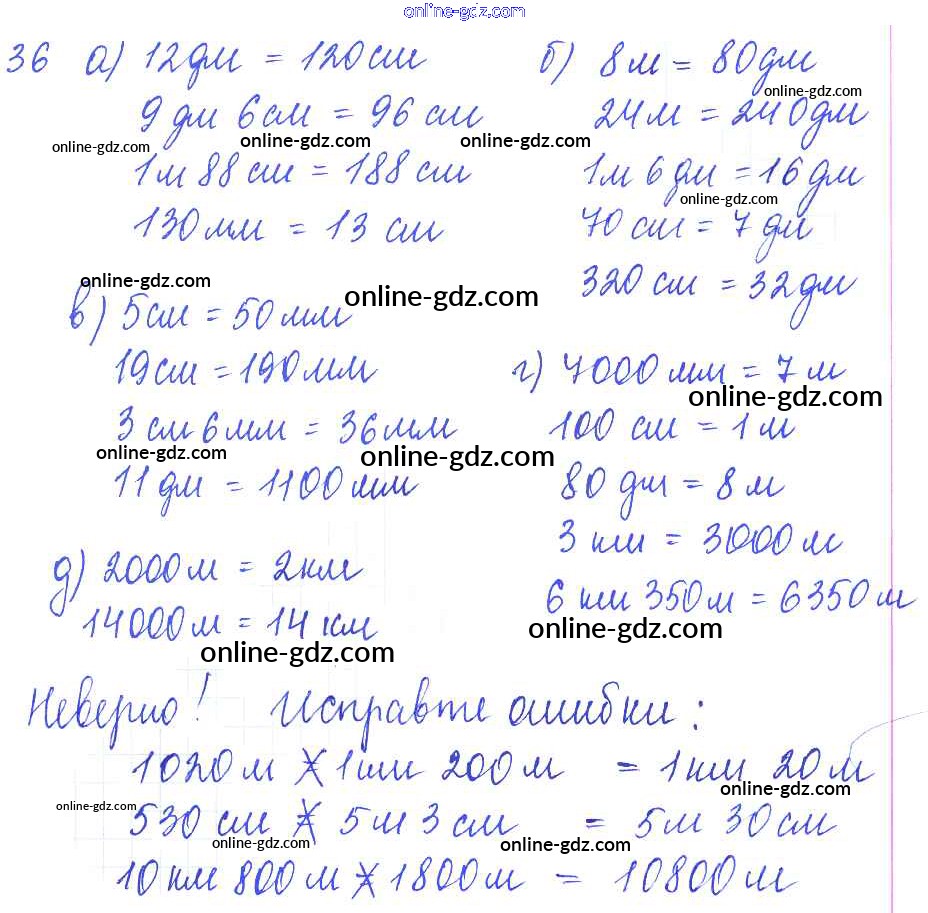 online-gdz.com
36 а) 12 дм = 120 см
9 дм 6 см = 96 см
online-gdz.com online-gdz.com online-gdz.com
1 м 88 см = 188 см
130 мм = 13 см
б) 8 м = 80 дм
online-gdz.com
24 м = 240 дм
1 м 6 дм = 16 дм
online-gdz.com
70 см = 7 дм
320 см = 32 дм
online-gdz.com
в) 5 см = 50 мм
online-gdz.com
19 см = 190 мм
3 см 6 мм = 36 мм
online-gdz.com online-gdz.com
11 дм = 1100 мм
г) 7000 мм = 7 м
online-gdz.com
100 см = 1 м
80 дм = 8 м
3 км = 3000 м
6 км 350 м = 6350 м
online-gdz.com
д) 2000 м = 2 км
14000 м = 14 км
online-gdz.com
Неверно! Исправте ошибки:
1020 м ≠ 1 км 200 м = 1 км 20 м
online-gdz.com online-gdz.com
530 см ≠ 5 м 3 см = 5 м 30 см
online-gdz.com online-gdz.com
10 км 800 м ≠ 1800 м = 10800 м